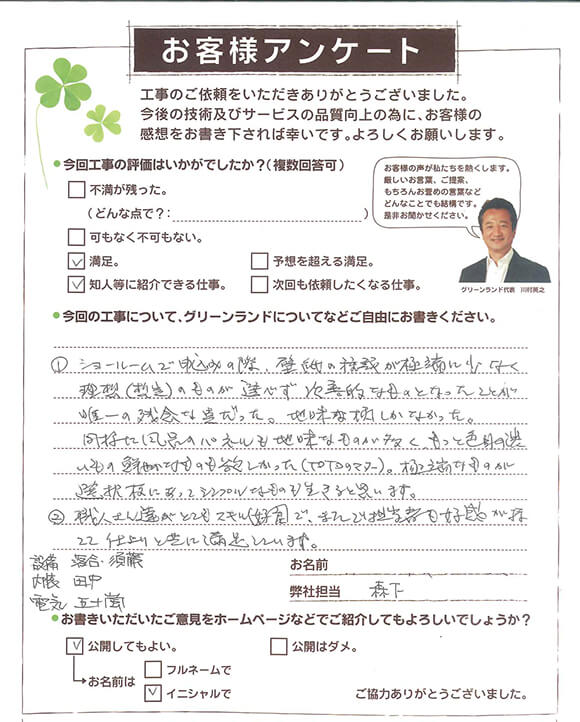 お客様アンケート
工事のご依頼をいただきありがとうございました。
今後の技術及びサービスの品質向上の為に、お客様の
感想をお書き下されば幸いです。よろしくお願いします。
●今回工事の評価はいかがでしたか?(複数回答可)
不満が残った。
(どんな点で?: )
可もなく不可もない。
満足。
予想を超える満足。
知人等に紹介できる仕事。
次回も依頼したくなる仕事。
お客様の声が私たちを熱くします。
厳しいお言葉、ご提案、
もちろんお誉めの言葉など
どんなことでも結構です。
是非お聞かせください。
グリーンランド代表 川村英之
●今回の工事について、グリーンランドについてなどご自由にお書きください。
① ショールームで申込みの際、壁紙の種類が極端に少なく
理想(想定)のものが選べず 次善的なものとなったことが
唯一の残念な点だった。地味な柄しかなかった。
同様に風呂のパネルも地味なものが多く もっと色目の濃
いもの鮮やかなものも欲しかった(TOTOのマター)。極端なものが
選択枝にあってシンプルなものも生きると思います。
② 職人さん達がとてもスキル 好、また担当者も好感が持
てて 仕上りと共に満足しています。
設備 落合・須藤
内装 田中
電気 五十嵐
お名前
弊社担当 森下
●お書きいただいたご意見をホームページなどでご紹介してもよろしいでしょうか?
公開してもよい。
公開はダメ。
お名前は
フルネームで
イニシャルで
ご協力ありがとうございました。